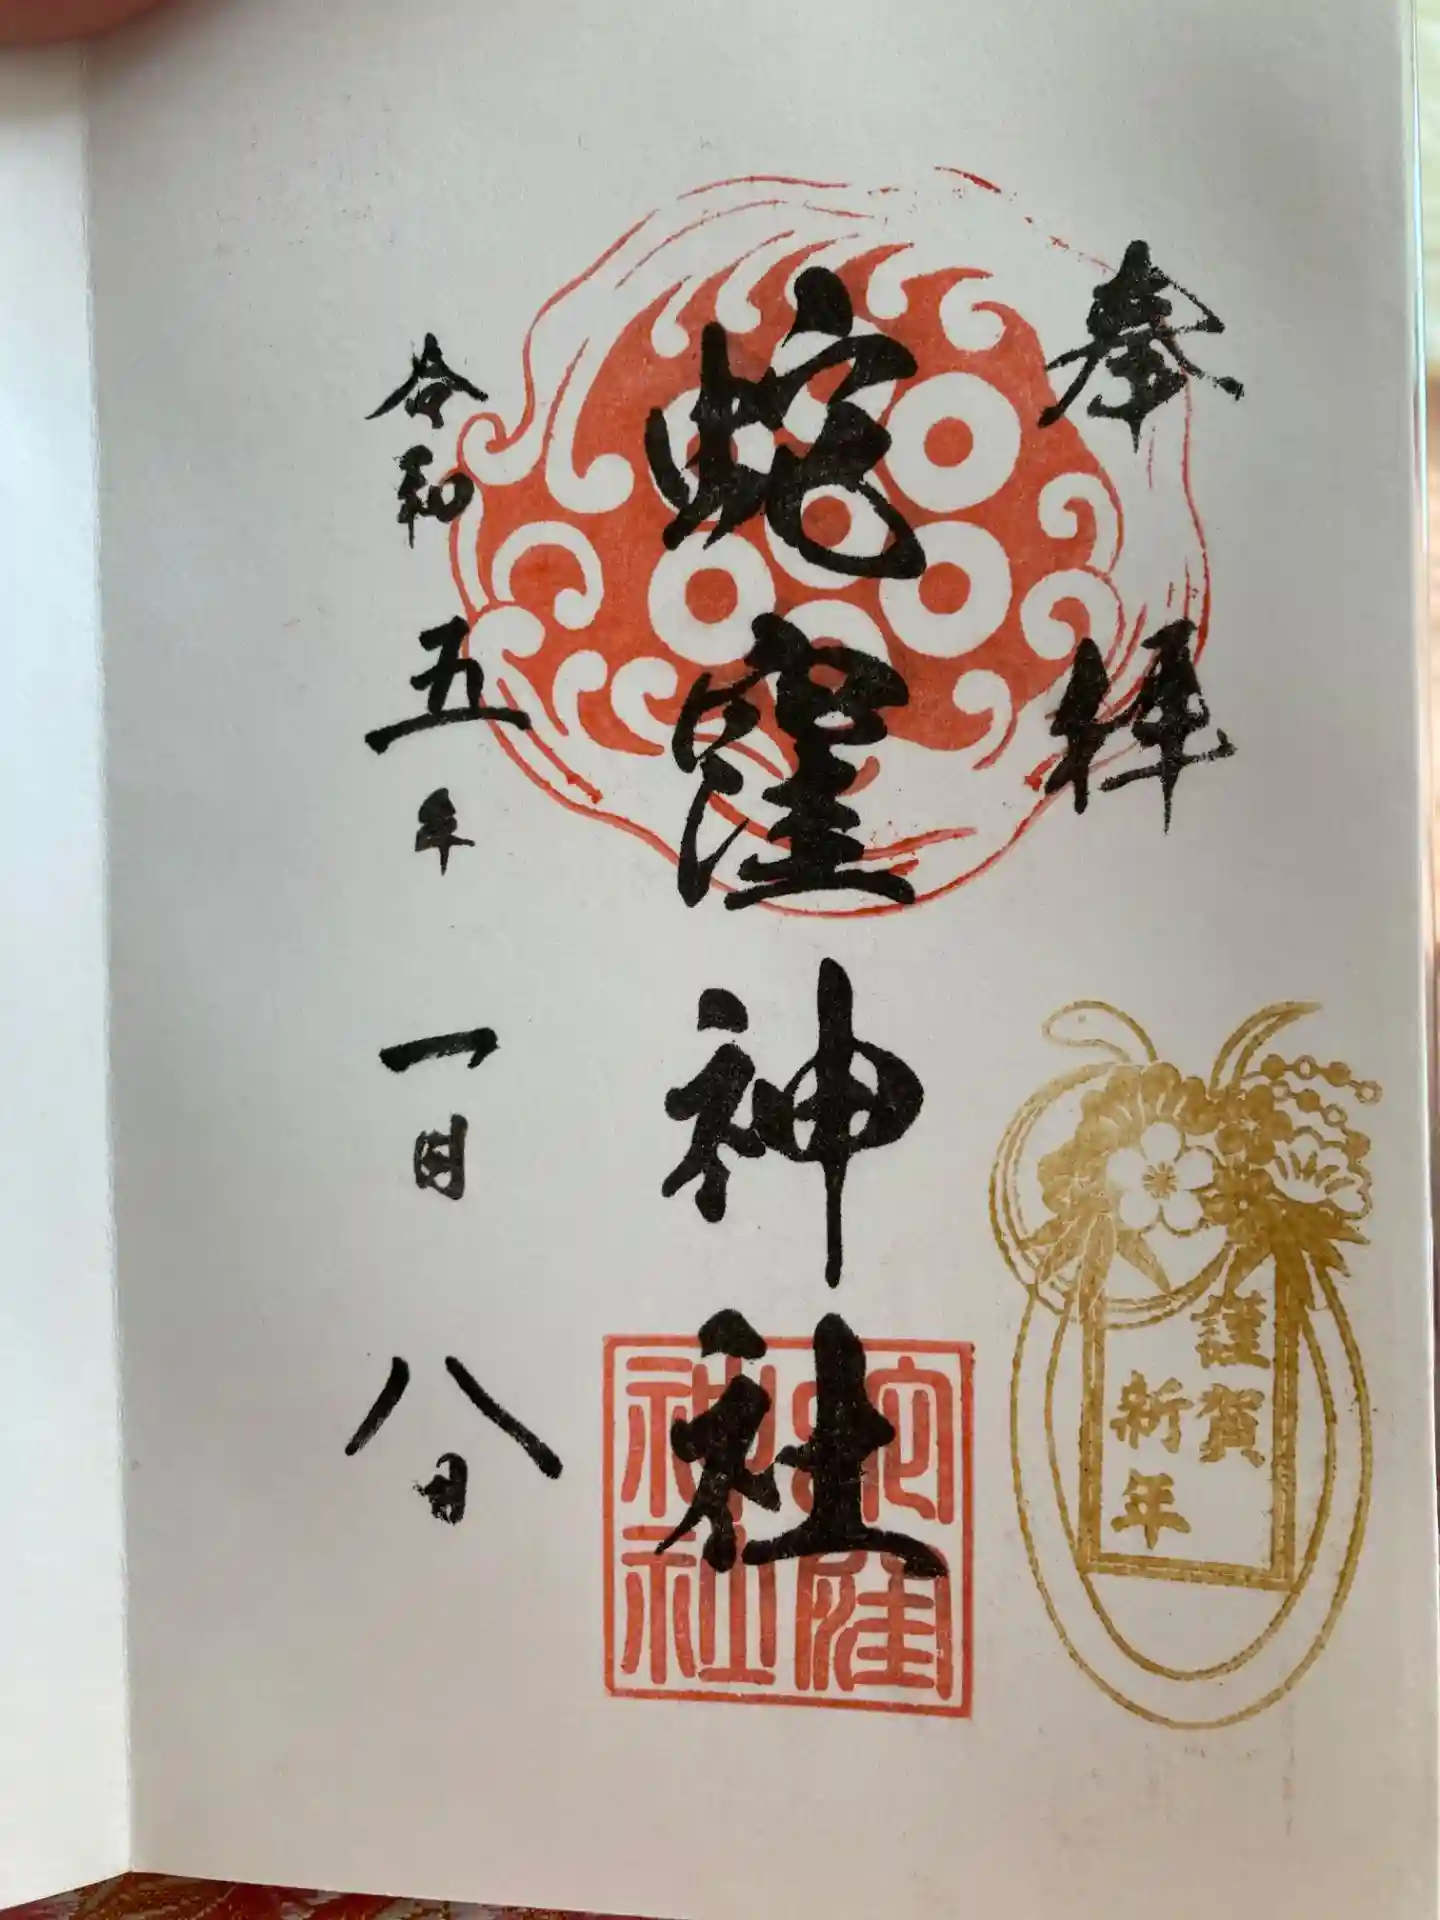 奉拝
蛇窪神社
令和五年一月八日
蛇窪
神社
謹賀
新年